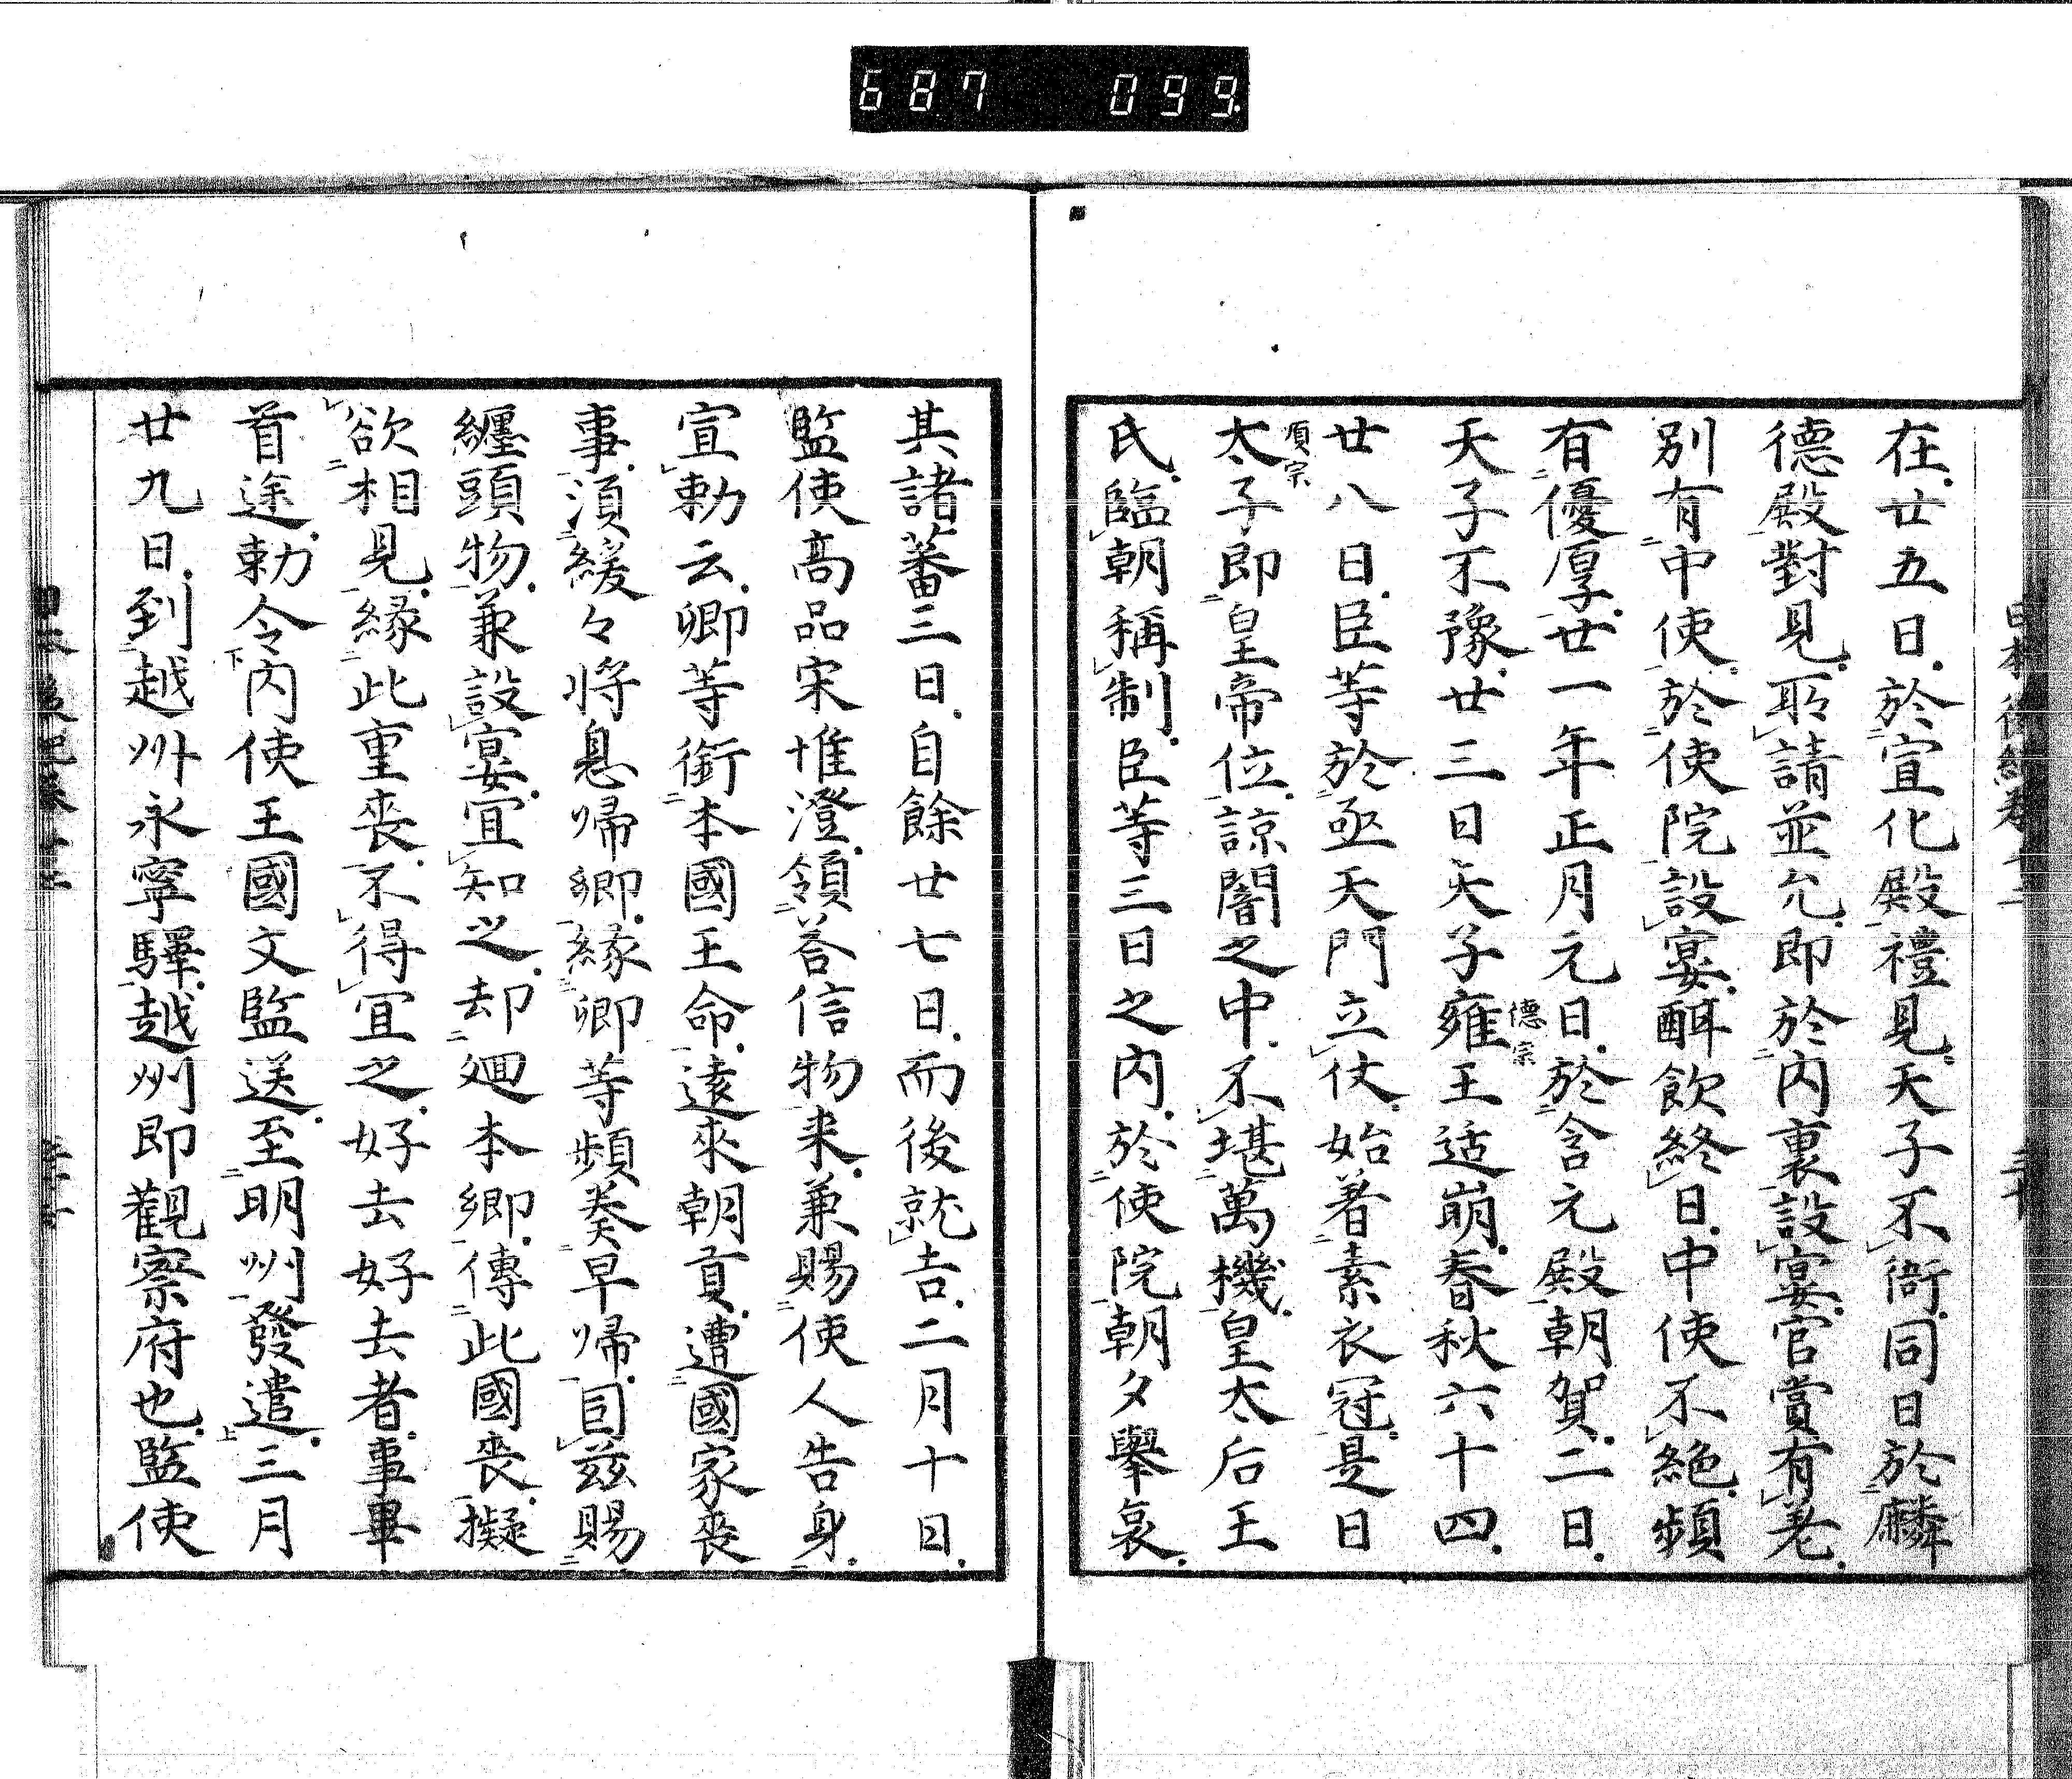 687 099
在廿五日於宣化殿禮見天子不衙同日於麟
德殿對見所請並允即於内裏設宴官賞有差
別有中使於使院設宴酣飲終日中使不絶頻
有優厚廿一年正月元日於含元殿朝賀二日
德宗
天子不豫廿三日天子雍王适崩春秋六十四
廿八日臣等於亟天門立仗始著素衣冠是日
順宗
太子即皇帝位諒闇之中不堪萬機皇太后王
氏臨朝稱制臣等三日之内於使院朝夕舉哀
其諸蕃三日自餘廿七日而後就吉二月十日
監使高品宋惟澄領荅信物来兼賜使人告身
宣勅云卿等銜本國王命遠來朝貢遭國家喪
事須緩々将息帰卿緣卿等頻奏早帰因茲賜
纏頭物兼設宴宜知之却廻本卿傳此國喪擬
欲相見緣此重喪不得宜之好去好去者事畢
首途勅令内使王國文監送至明州發遣三月
廿九日到越州永寧驛越州即觀察府也監使